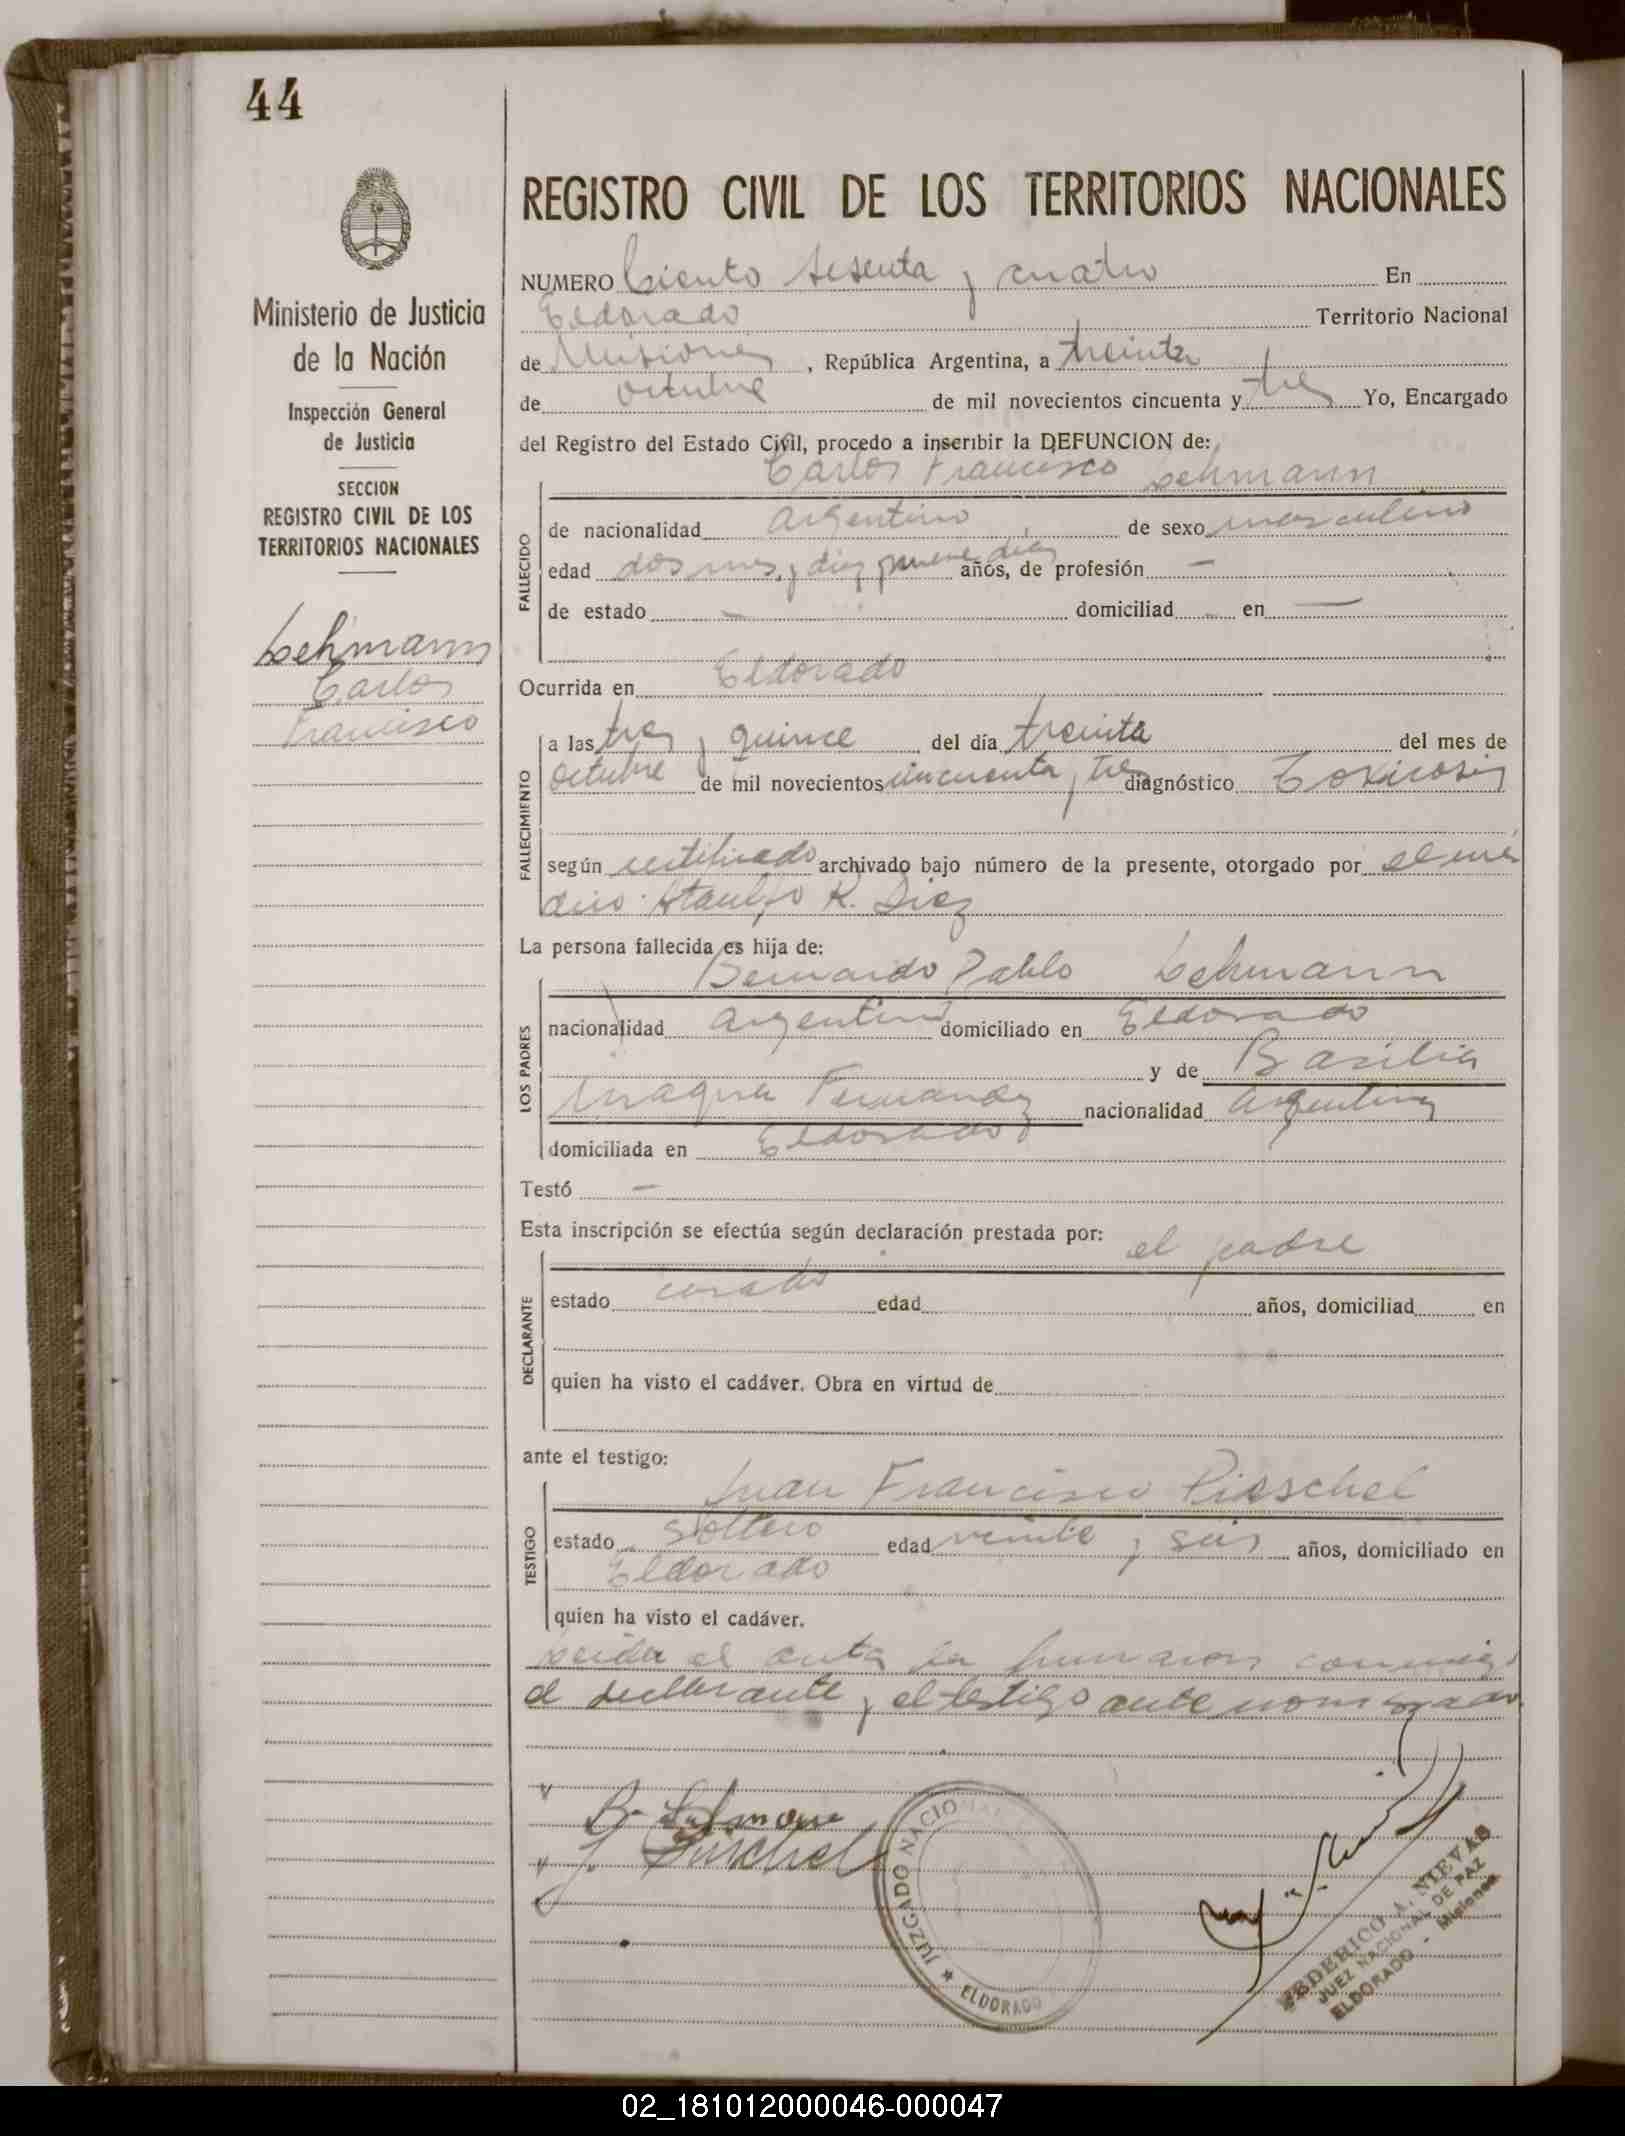 44
REGISTRO CIVIL DE LOS TERRITORIOS NACIONALES
Ministerio de Justicia
de la Nación
Inspección General
de Justicia
SECCION
REGISTRO CIVIL DE LOS
TERRITORIOS NACIONALES
Lehmann
Carlos
Francisco
NUMERO Ciento sesenta y cuatro En
Eldorado Territorio Nacional
de Misiones, República Argentina, a treinta
de octubre de mil novecientos cincuenta y tres Yo, Encargado
del Registro del Estado Civil, procedo a inscribir la DEFUNCION de:
Carlos Francisco Lehmann
FALLECIDO
de nacionalidad argentino, de sexo masculino
edad dos mes, y diez nueve dias años, de profesión —
de estado — domiciliad — en —
Ocurrida en Eldorado
FALLECIMIENTO
a las tres y quince del día treinta del mes de
octubre de mil novecientos cincuenta y tres diagnóstico Toxicosis
según certificado archivado bajo número de la presente, otorgado por el mé
dico Ataulfo R. Diez
La persona fallecida es hija de:
Bernardo Pablo Lehmann
LOS PADRES
nacionalidad argentino domiciliado en Eldorado
y de Basilia
Fernandez nacionalidad argentina
domiciliada en Eldorado
Testó —
Esta inscripción se efectúa según declaración prestada por: el padre
DECLARANTE
estado casado edad años, domiciliad en
quien ha visto el cadáver. Obra en virtud de
ante el testigo:
Juan Francisco Pieschel
TESTIGO
estado soltero edad veinte y seis años, domiciliado en
Eldorado
quien ha visto el cadáver.
Leida el acta la firmaron conmigo
el declarante y el testigo ante nombrado.
B. Lehmann
J. Pieschel
JUZGADO NACIONAL
ELDORADO
FEDERICO A. NIEVAS
JUEZ NACIONAL DE PAZ
ELDORADO - Misiones
02_181012000046-000047